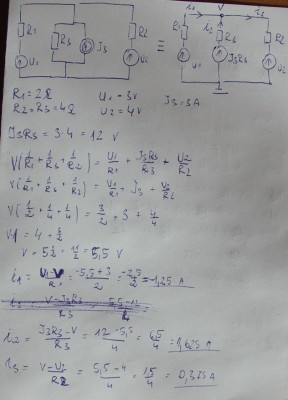 V
i1
i3
R1
R3
J3
R2
U1
U2
≡
i2
R1
R3
R2
U1
J3R3
U2
R1 = 2Ω U1 = 3v
R2 = R3 = 4Ω U2 = 4v J3 = 3A
J3R3 = 3·4 = 12 v
V(1/R1 + 1/R3 + 1/R2) = U1/R1 + J3R3/R3 + U2/R2
V(1/R1 + 1/R3 + 1/R2) = U1/R1 + J3 + U2/R2
V(1/2 + 1/4 + 1/4) = 3/2 + 3 + 4/4
V·1 = 4 + 3/2
V = 5 1/2 = 11/2 = 5,5 V
i1 = U1-V/R1 = -5,5+3/2 = -2,5/2 = -1,25 A
V-J3R3/R3 5,5-12
i2 = J3R3-V/R3 = 12-5,5/4 = 6,5/4 = 1,625 A
i3 = V-U2/R2 = 5,5-4/4 = 1,5/4 = 0,375 A